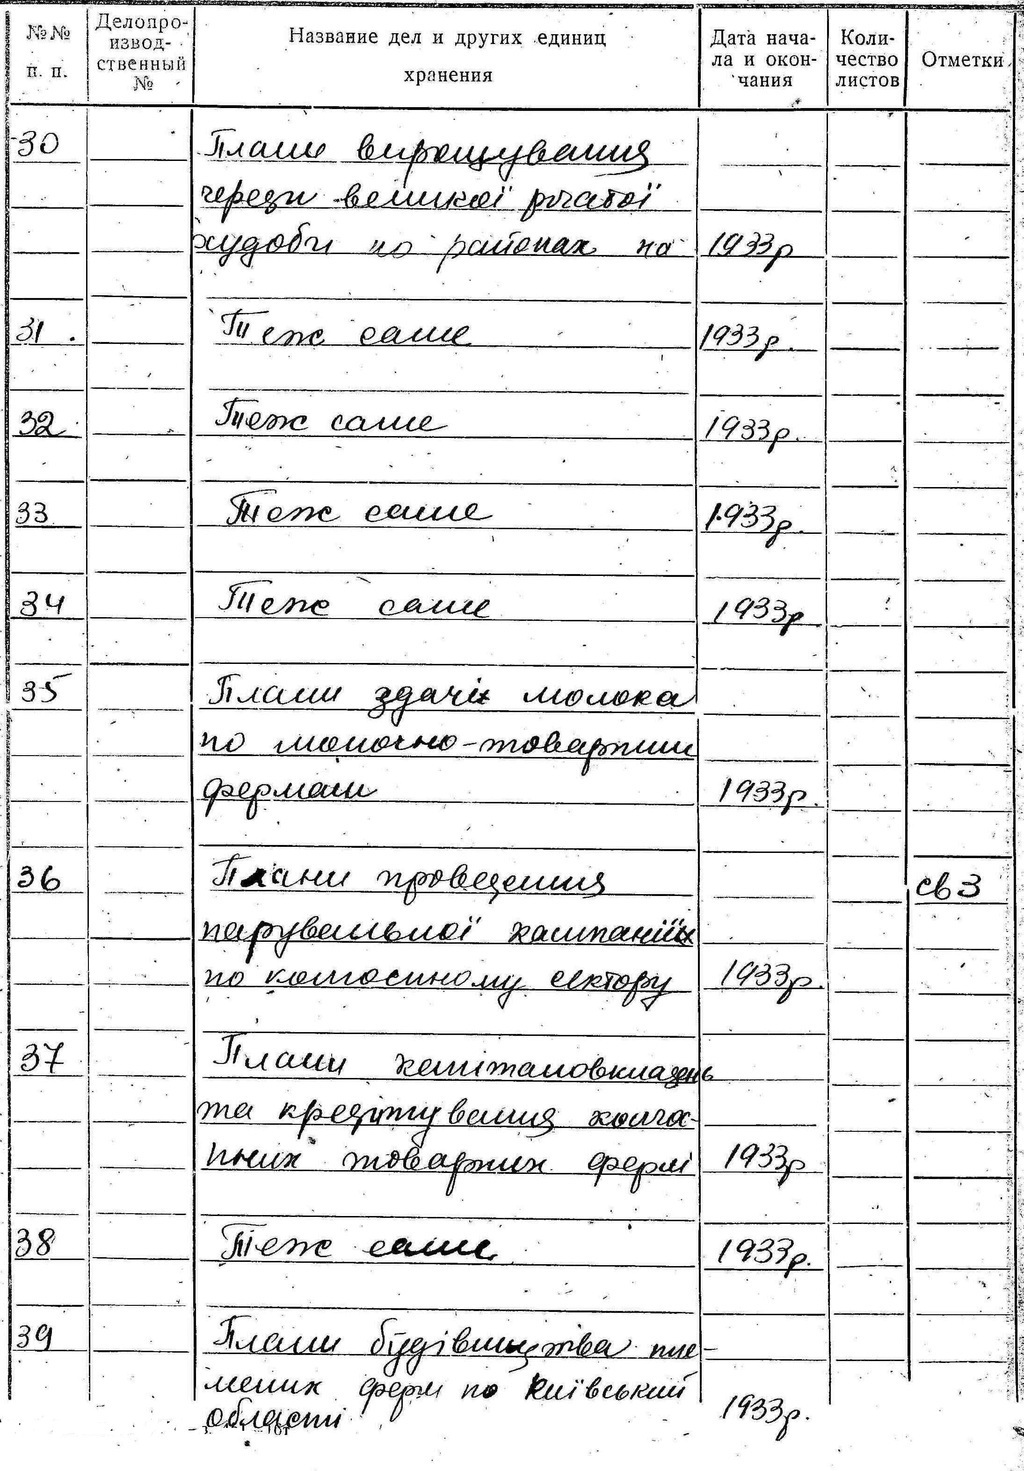 №№ п. п. Делопроизводственный № Название дел и других единиц хранения Дата начала и окончания Количество листов Отметки
30 Плани вирощування
череди великої рогатої
худоби по районах на 1933р
31. Теж саме 1933р.
32 Теж саме 1933р.
33 Теж саме 1933р.
34 Теж саме 1933р.
35 Плани здачі молока
по молочно-товарним
фермам 1933р.
36 Плани проведення св 3
парувальної кампанії
по колгоспному сектору 1933р.
37 Плани капіталовкладень
та кредітування колга-
пних товарних ферм 1933р
38 Теж саме 1933р.
39 Плани будівництва пле-
мених ферм по Київський
області 1933р.